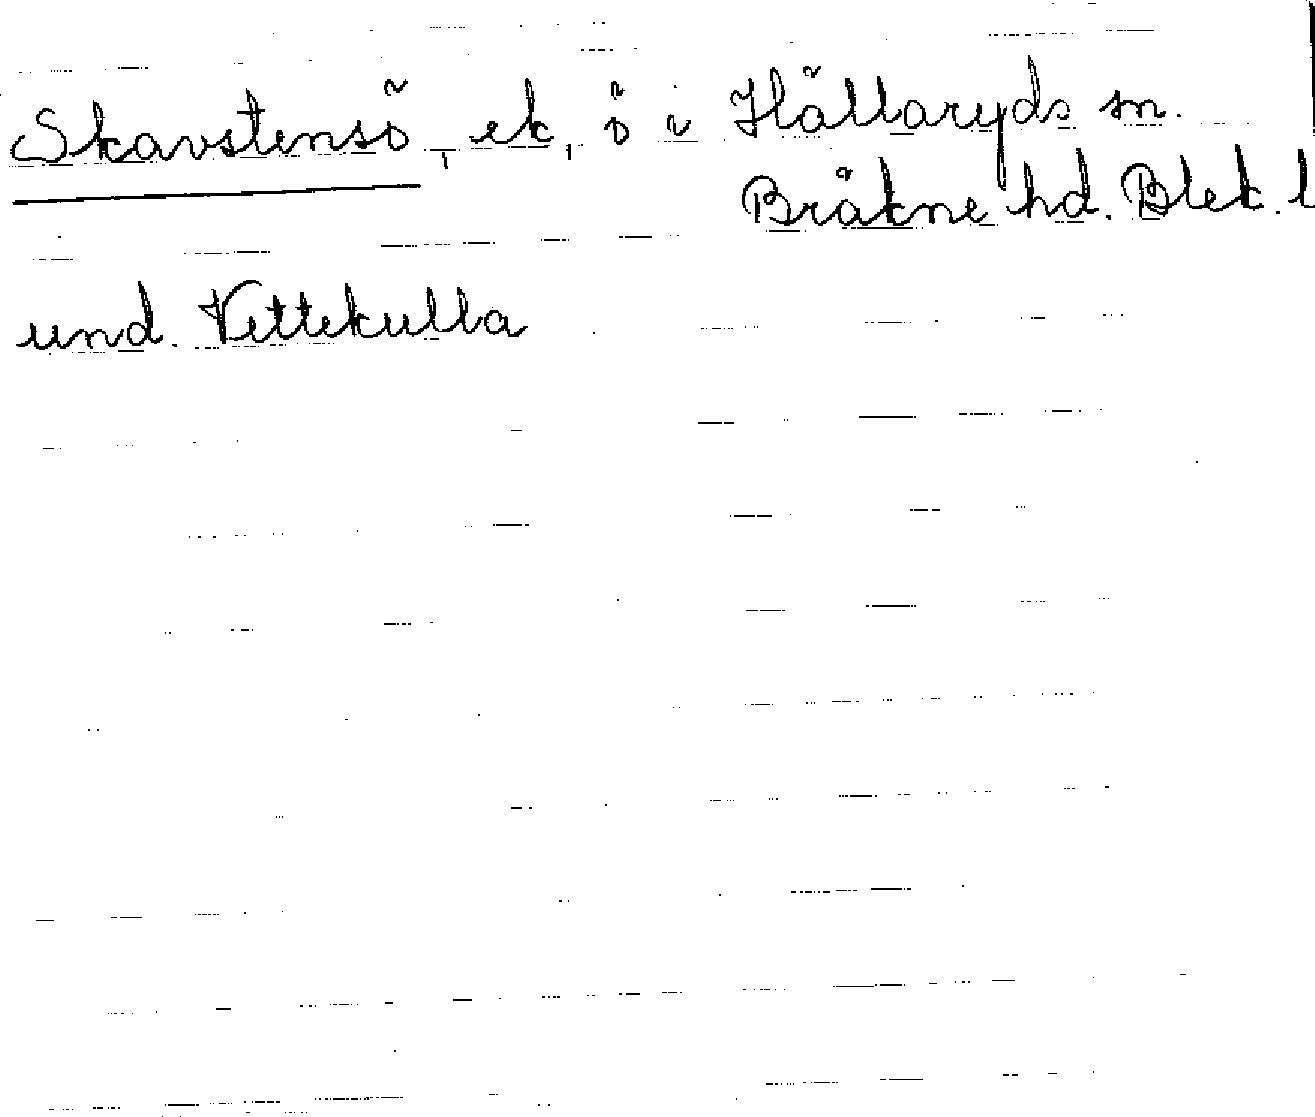 Skavstensö, ek, ö i Hällaryds sn.
Bräkne hd. Blek. l
und. Vettekulla